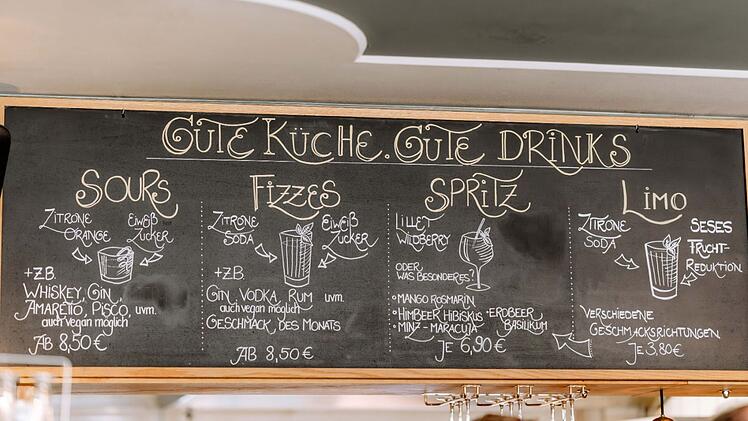 GUTE KÜCHE. GUTE DRINKS
SOURS
ZITRONE
ORANGE
EIWEIß
ZUCKER
+Z.B.
WHISKEY, GIN,
AMARETTO, PISCO, uvm.
auch vegan möglich
AB 8,50€
FIZZES
ZITRONE
SODA
EIWEIß
ZUCKER
+Z.B.
GIN, VODKA, RUM uvm.
auch vegan möglich
GESCHMACK DES MONATS
AB 8,50€
SPRITZ
LILLET
WILDBERRY
ODER
WAS BESONDERES?
• MANGO ROSMARIN
• HIMBEER HIBISKUS
• MINZ-MARACUJA
• ERDBEER
BASILIKUM
JE 6,90€
LIMO
ZITRONE
SODA
SESES
FRUCHT-
REDUKTION
VERSCHIEDENE
GESCHMACKSRICHTUNGEN
JE 3,80€